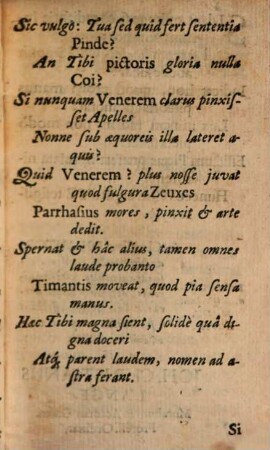 Sic vulgò: Tua sed quid fert sententia
Pinde?
An Tibi pictoris gloria nulla
Coi?
Si nunquam Venerem clarus pinxis-
set Apelles
Nonne sub æquoreis illa lateret a-
quis?
Quid Venerem? plus nosse juvat
quod fulgura Zeuxes
Parrhasius mores, pinxit & arte
dedit.
Spernat & hâc alius, tamen omnes
laude probanto
Timantis moveat, quod pia sensa
manus.
Hæc Tibi magna sient, solidè quâ di-
gna doceri
Atq; parent laudem, nomen ad a-
stra ferant.
Si